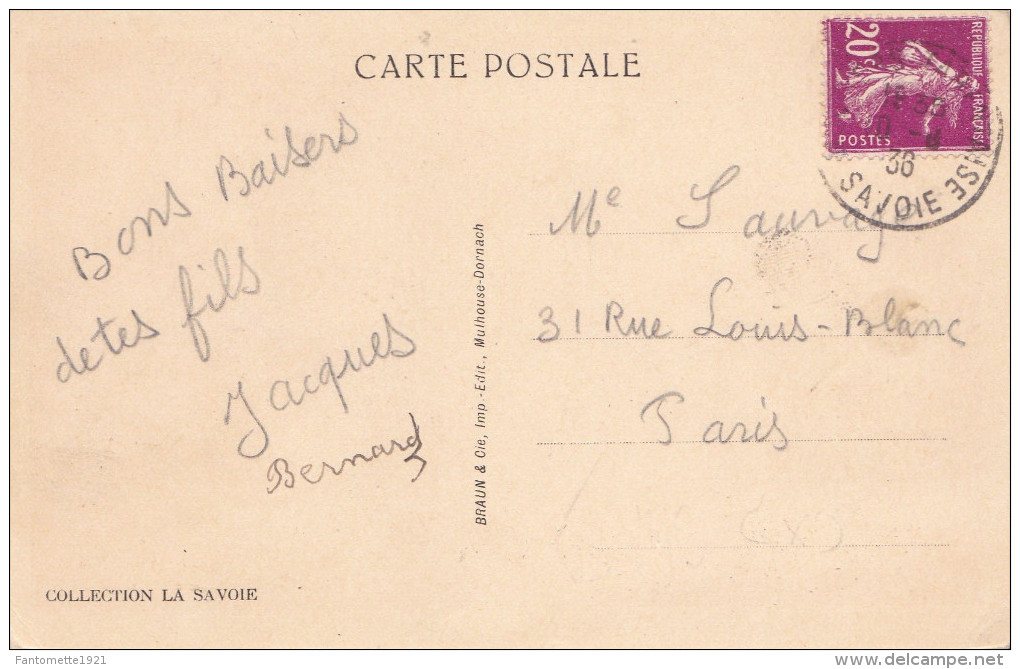 CARTE POSTALE
Bons Baisers
de tes fils
Jacques
Bernard
COLLECTION LA SAVOIE
BRAUN & Cie, Imp.-Edit., Mulhouse-Dornach
20c
REPUBLIQUE FRANÇAISE
POSTES
36
SAVOIE
Me Sauvage
31 Rue Louis-Blanc
Paris
(X)
Fantomette1921
delcampe.net